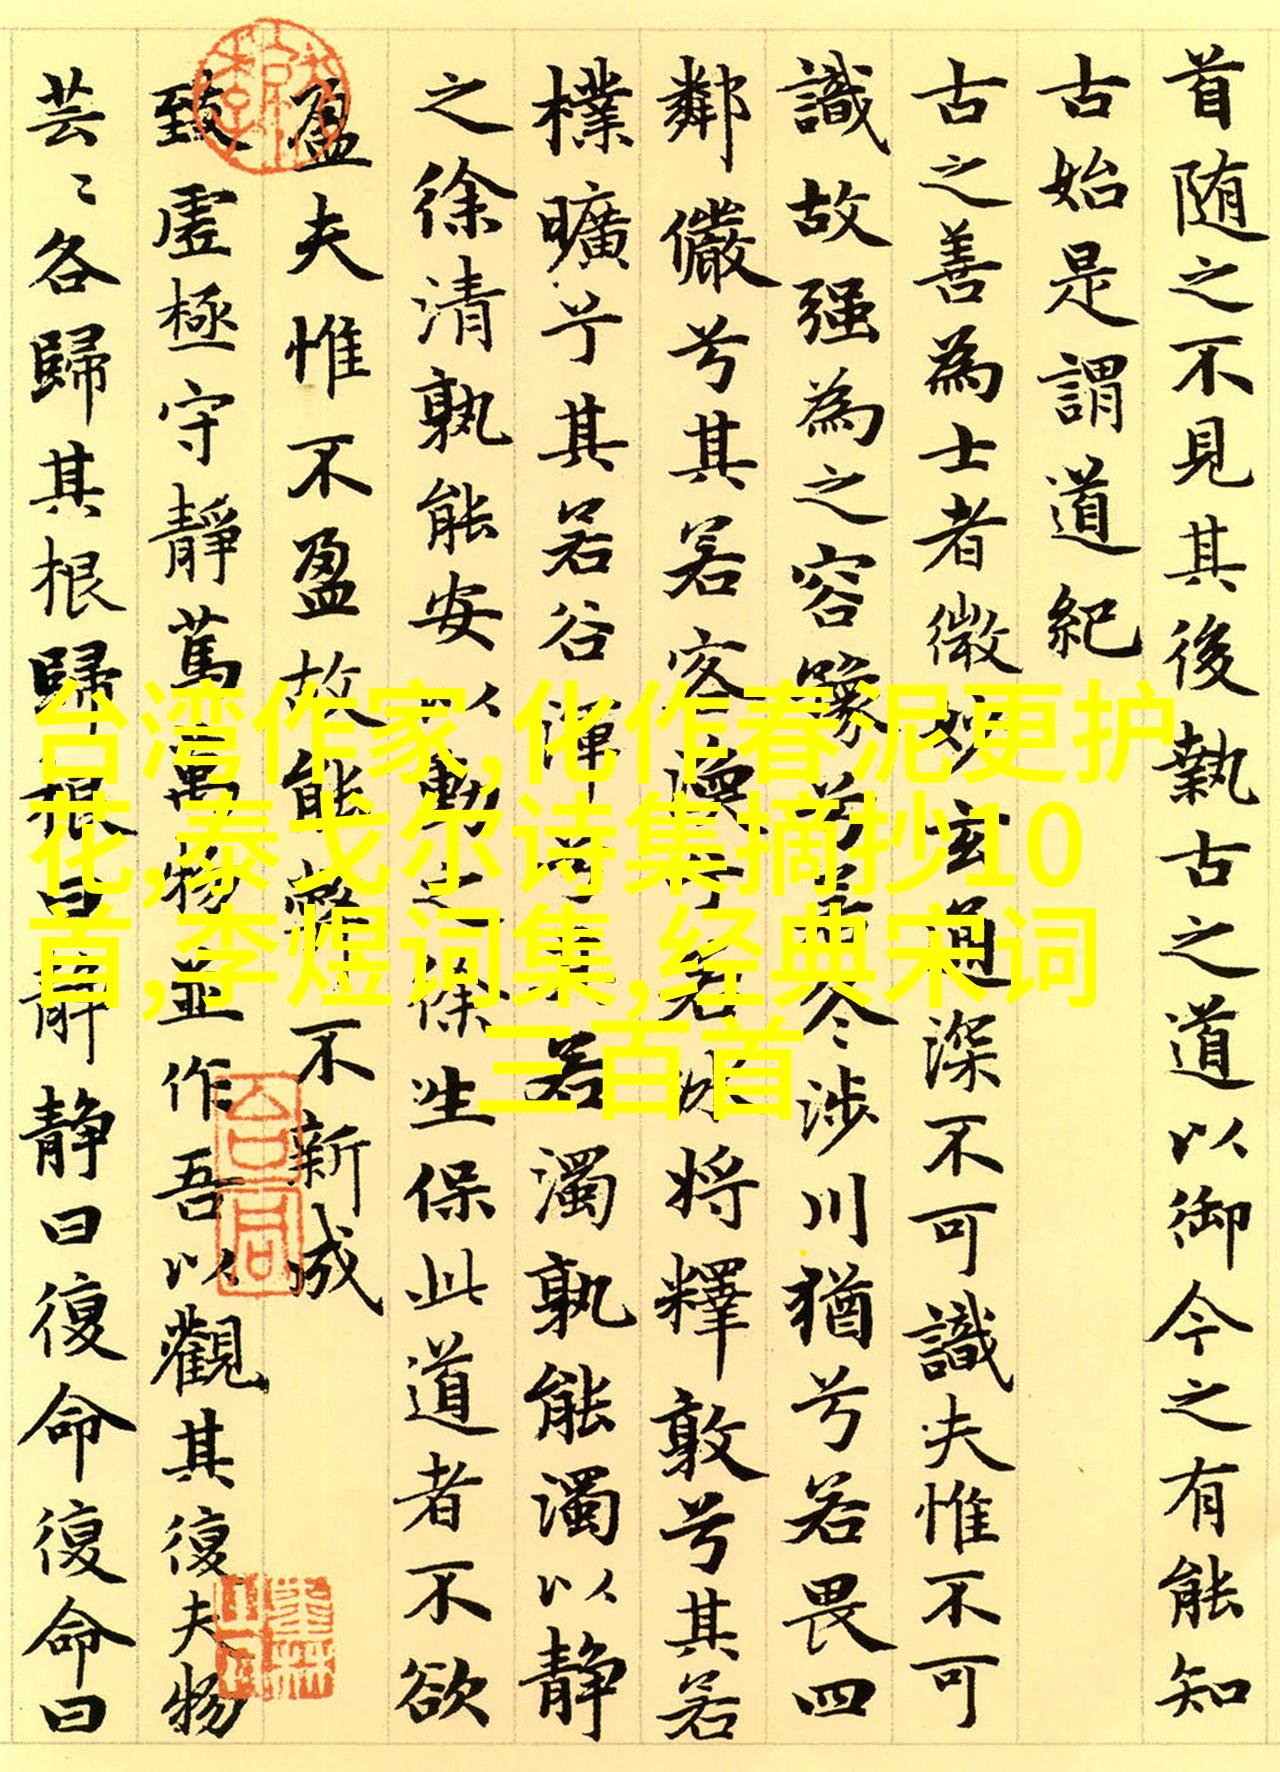 首随之不見其後執古之道以御今之有能知
古始是謂道紀
古之善為士者微妙玄通深不可識夫惟不可
識故强為之容豫兮若冬涉川猶兮若畏四
鄰儼兮其若客渙兮若冰將釋敦兮其若
樸曠兮其若谷渾兮其若濁孰能濁以静
之徐清孰能安以動之徐生保此道者不欲
盈夫惟不盈故能弊不新成
致虛極守靜篤萬物並作吾以觀其復夫物
芸〻各歸其根歸根曰静静曰復命復命曰
台湾作家,化作春泥更护
花,泰戈尔诗集摘抄10
首,李煜词集,经典宋词
三百首